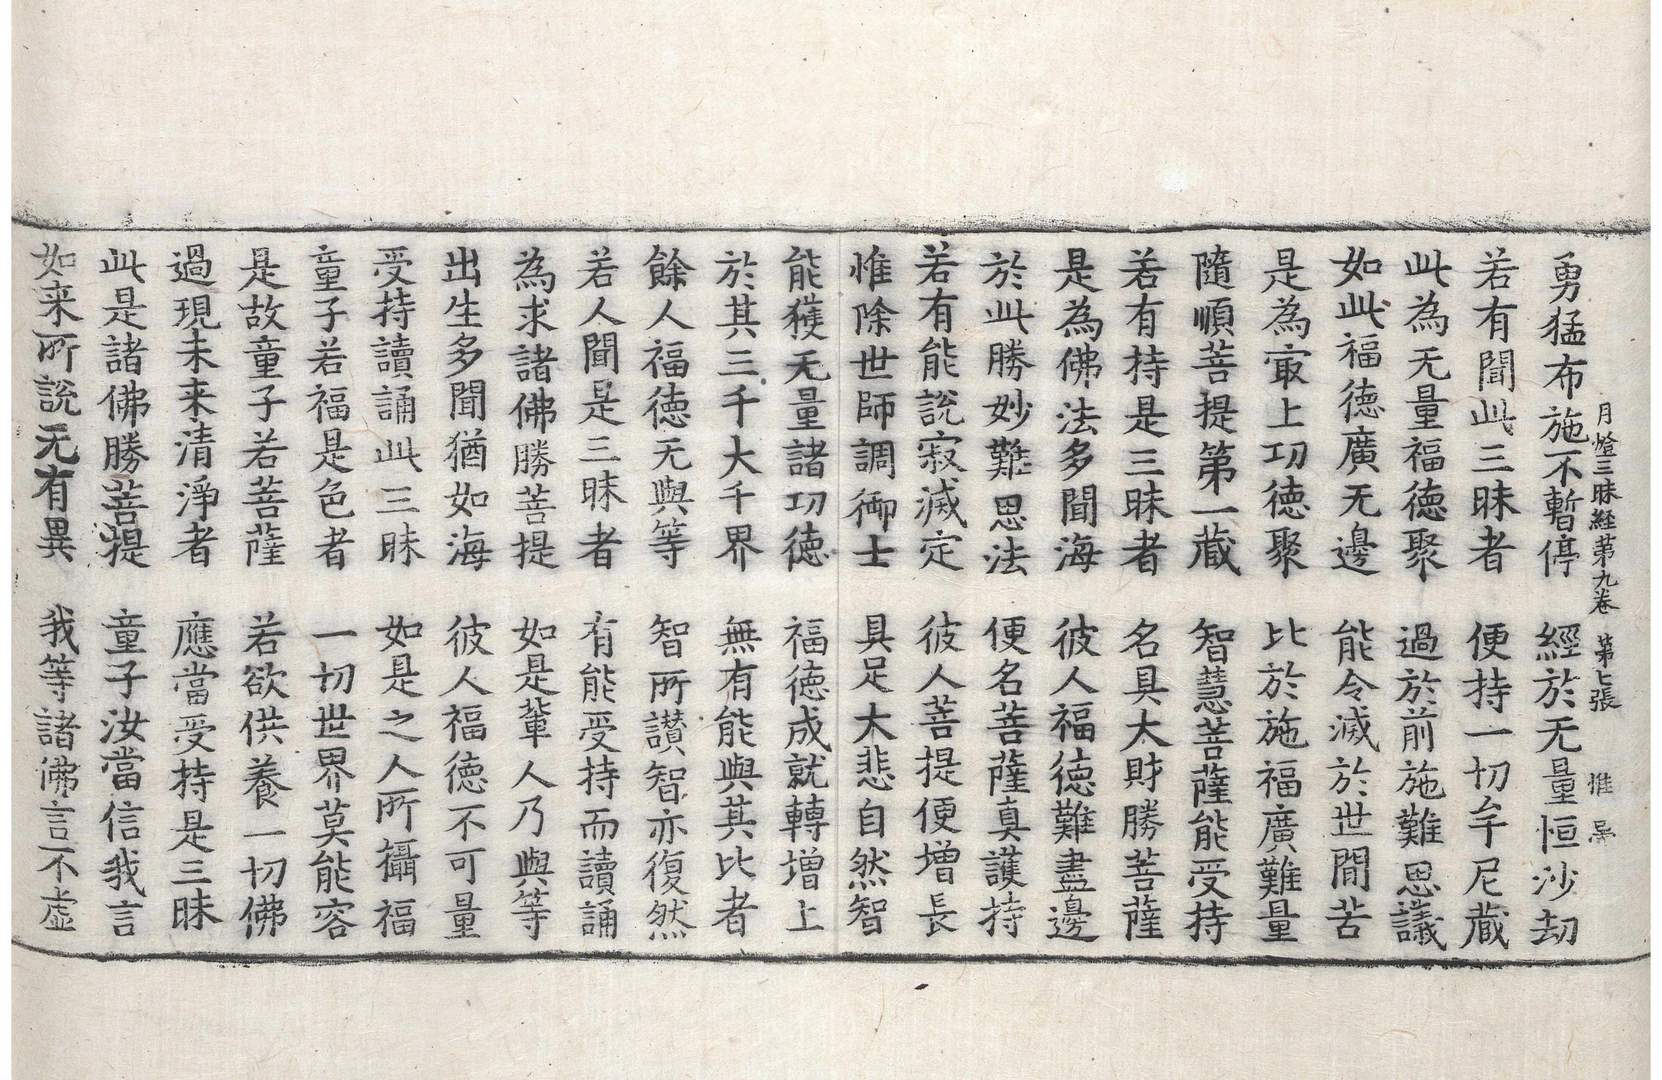 月燈三昧経苐九卷 第七張 惟
勇猛布施不暫停 經於无量恒沙劫
若有聞此三昧者 便持一切牟尼藏
此為无量福德聚 過於前施難思議
如此福德廣无邊 能令滅於世間苦
是為㝡上功德聚 比於施福廣難量
隨順菩提第一藏 智慧菩薩能受持
若有持是三昧者 名具大財勝菩薩
是為佛法多聞海 彼人福德難盡邊
於此勝妙難思法 便名菩薩真護持
若有能說寂滅定 彼人菩提便增長
惟除世師調御士 具足大悲自然智
能獲无量諸功德 福德成就轉增上
於其三千大千界 無有能與其比者
餘人福德无與等 智所讃智亦復然
若人聞是三昧者 有能受持而讀誦
為求諸佛勝菩提 如是軰人乃與等
出生多聞猶如海 彼人福德不可量
受持讀誦此三昧 如是之人所攝福
童子若福是色者 一切世界莫能容
是故童子若菩薩 若欲供養一切佛
過現未来清淨者 應當受持是三昧
此是諸佛勝菩提 童子汝當信我言
如来所說无有異 我等諸佛言不虛